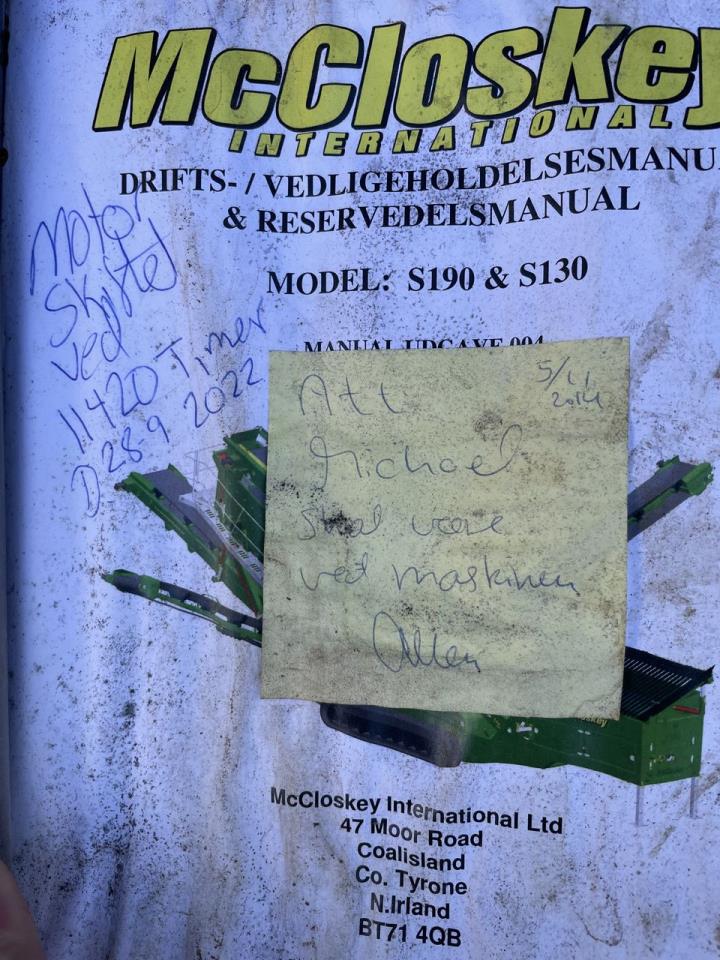 McCloskey
INTERNATIONAL
DRIFTS- / VEDLIGEHOLDELSESMANU
& RESERVEDELSMANUAL
MODEL: S190 & S130
MANUAL UDGAVE 004
Motor
Skiftet
ved
11420 Timer
D 28-9 2022
5/11
2014
Att
Michael
skal være
ved maskinen
McCloskey International Ltd
47 Moor Road
Coalisland
Co. Tyrone
N.Irland
BT71 4QB